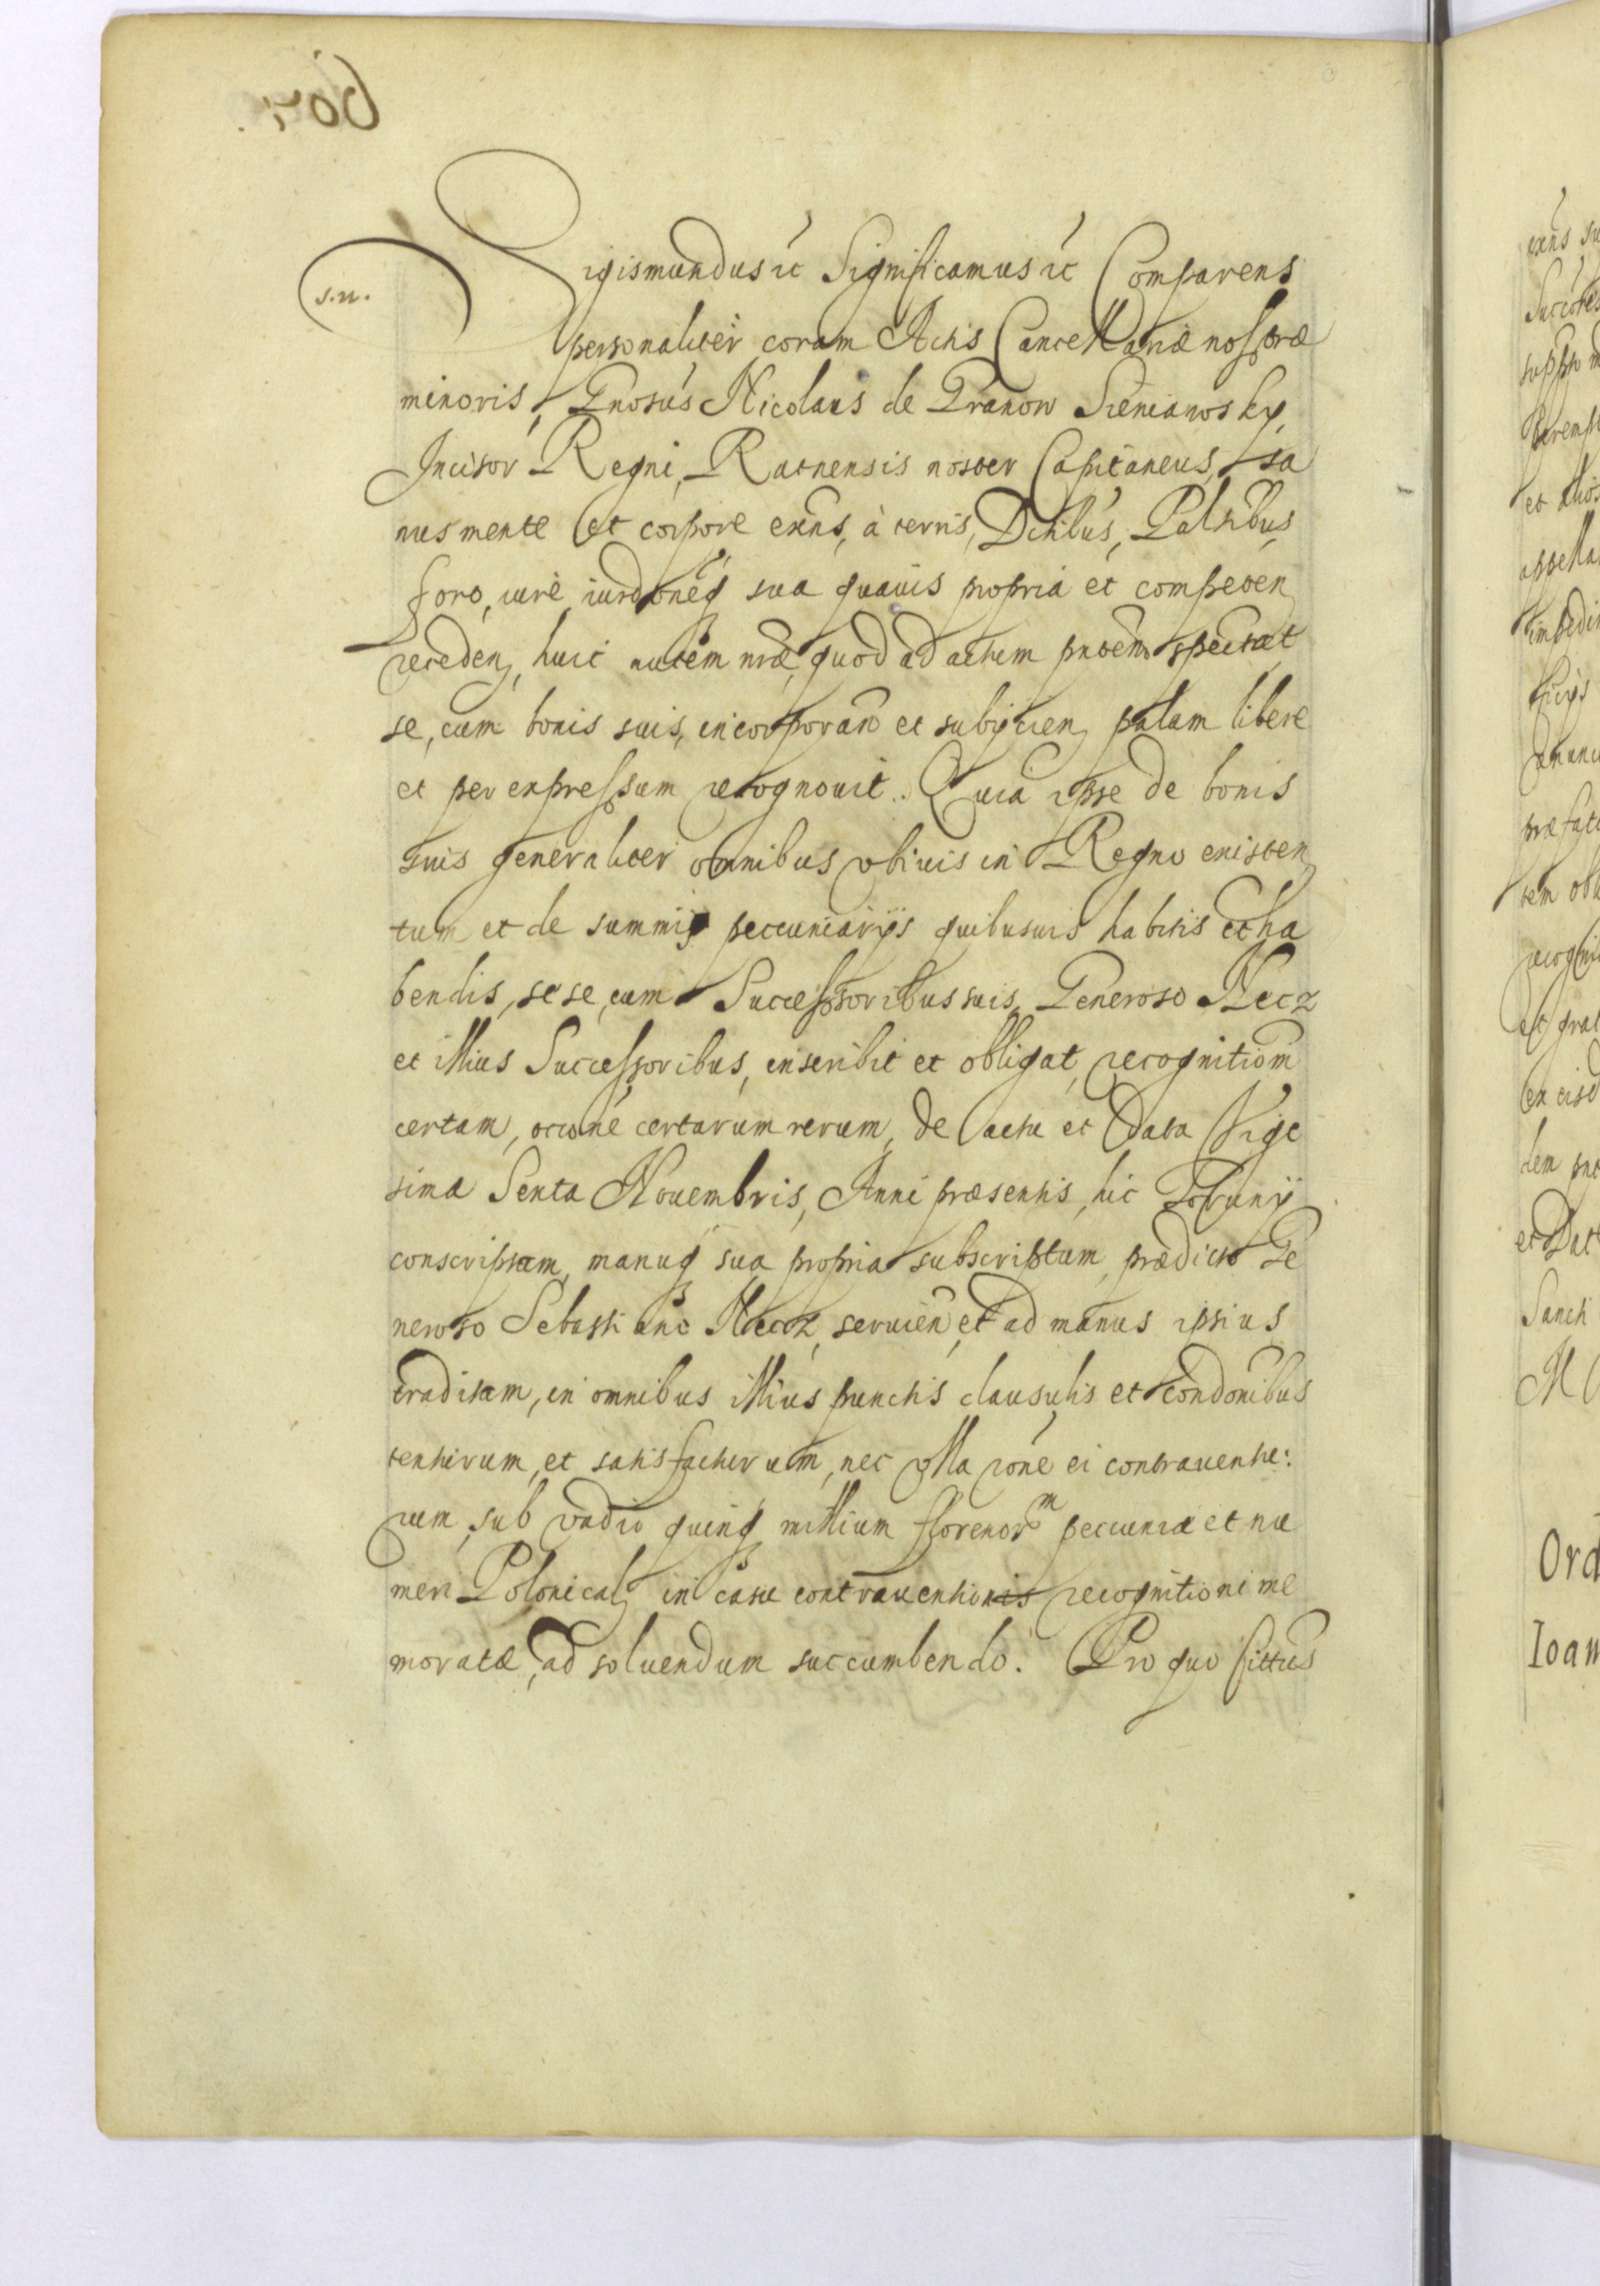 s.n.
Sigismundus ec Significamus ec Comparens
personaliter coram Actis Cancellariæ nostræ
minoris, Gnosus Nicolaus de Granow Sieniawsky,
Incisor Regni, Ratnensis noster Capitaneus, sa
nus mente et corpore exñs, à terris, Dctibus, Paltibus,
foro, iure iurdoneq sua quauis propria et competen
receden, huic autem nræ, quod ad actum pñtem spectat
se, cum bonis suis, incorporañ et subijcien, palam libere
et per expressum recognouit. Quia ipse de bonis
suis generaliter omnibus vbiuis in Regno existen
tum et de summis peccuniarijs quibusuis habitis et ha
bendis, sese, cum Successoribus suis, Generoso Necz
et illius Successoribus, inscribit et obligat, recognitiom
certam, occone certarum rerum, de actu et Data Vige
sima Sexta Nouembris, Anni præsentis, hic Torunij
conscriptam, manuq sua propria subscriptam, prædicto Ge
neroso Sebastiano Necz, seruien, et ad manus ipsius
traditam, in omnibus illius punctis clausulis et condonibus
tenturum, et satisfacturum, nec vlla rone ei contrauentu:
rum, sub vadio quinq millium florenorm peccuniæ et nu
meri Polonical, in casu contrauentionis recognitioni me
moratæ, ad soluendum succumbendo. Pro quo citus